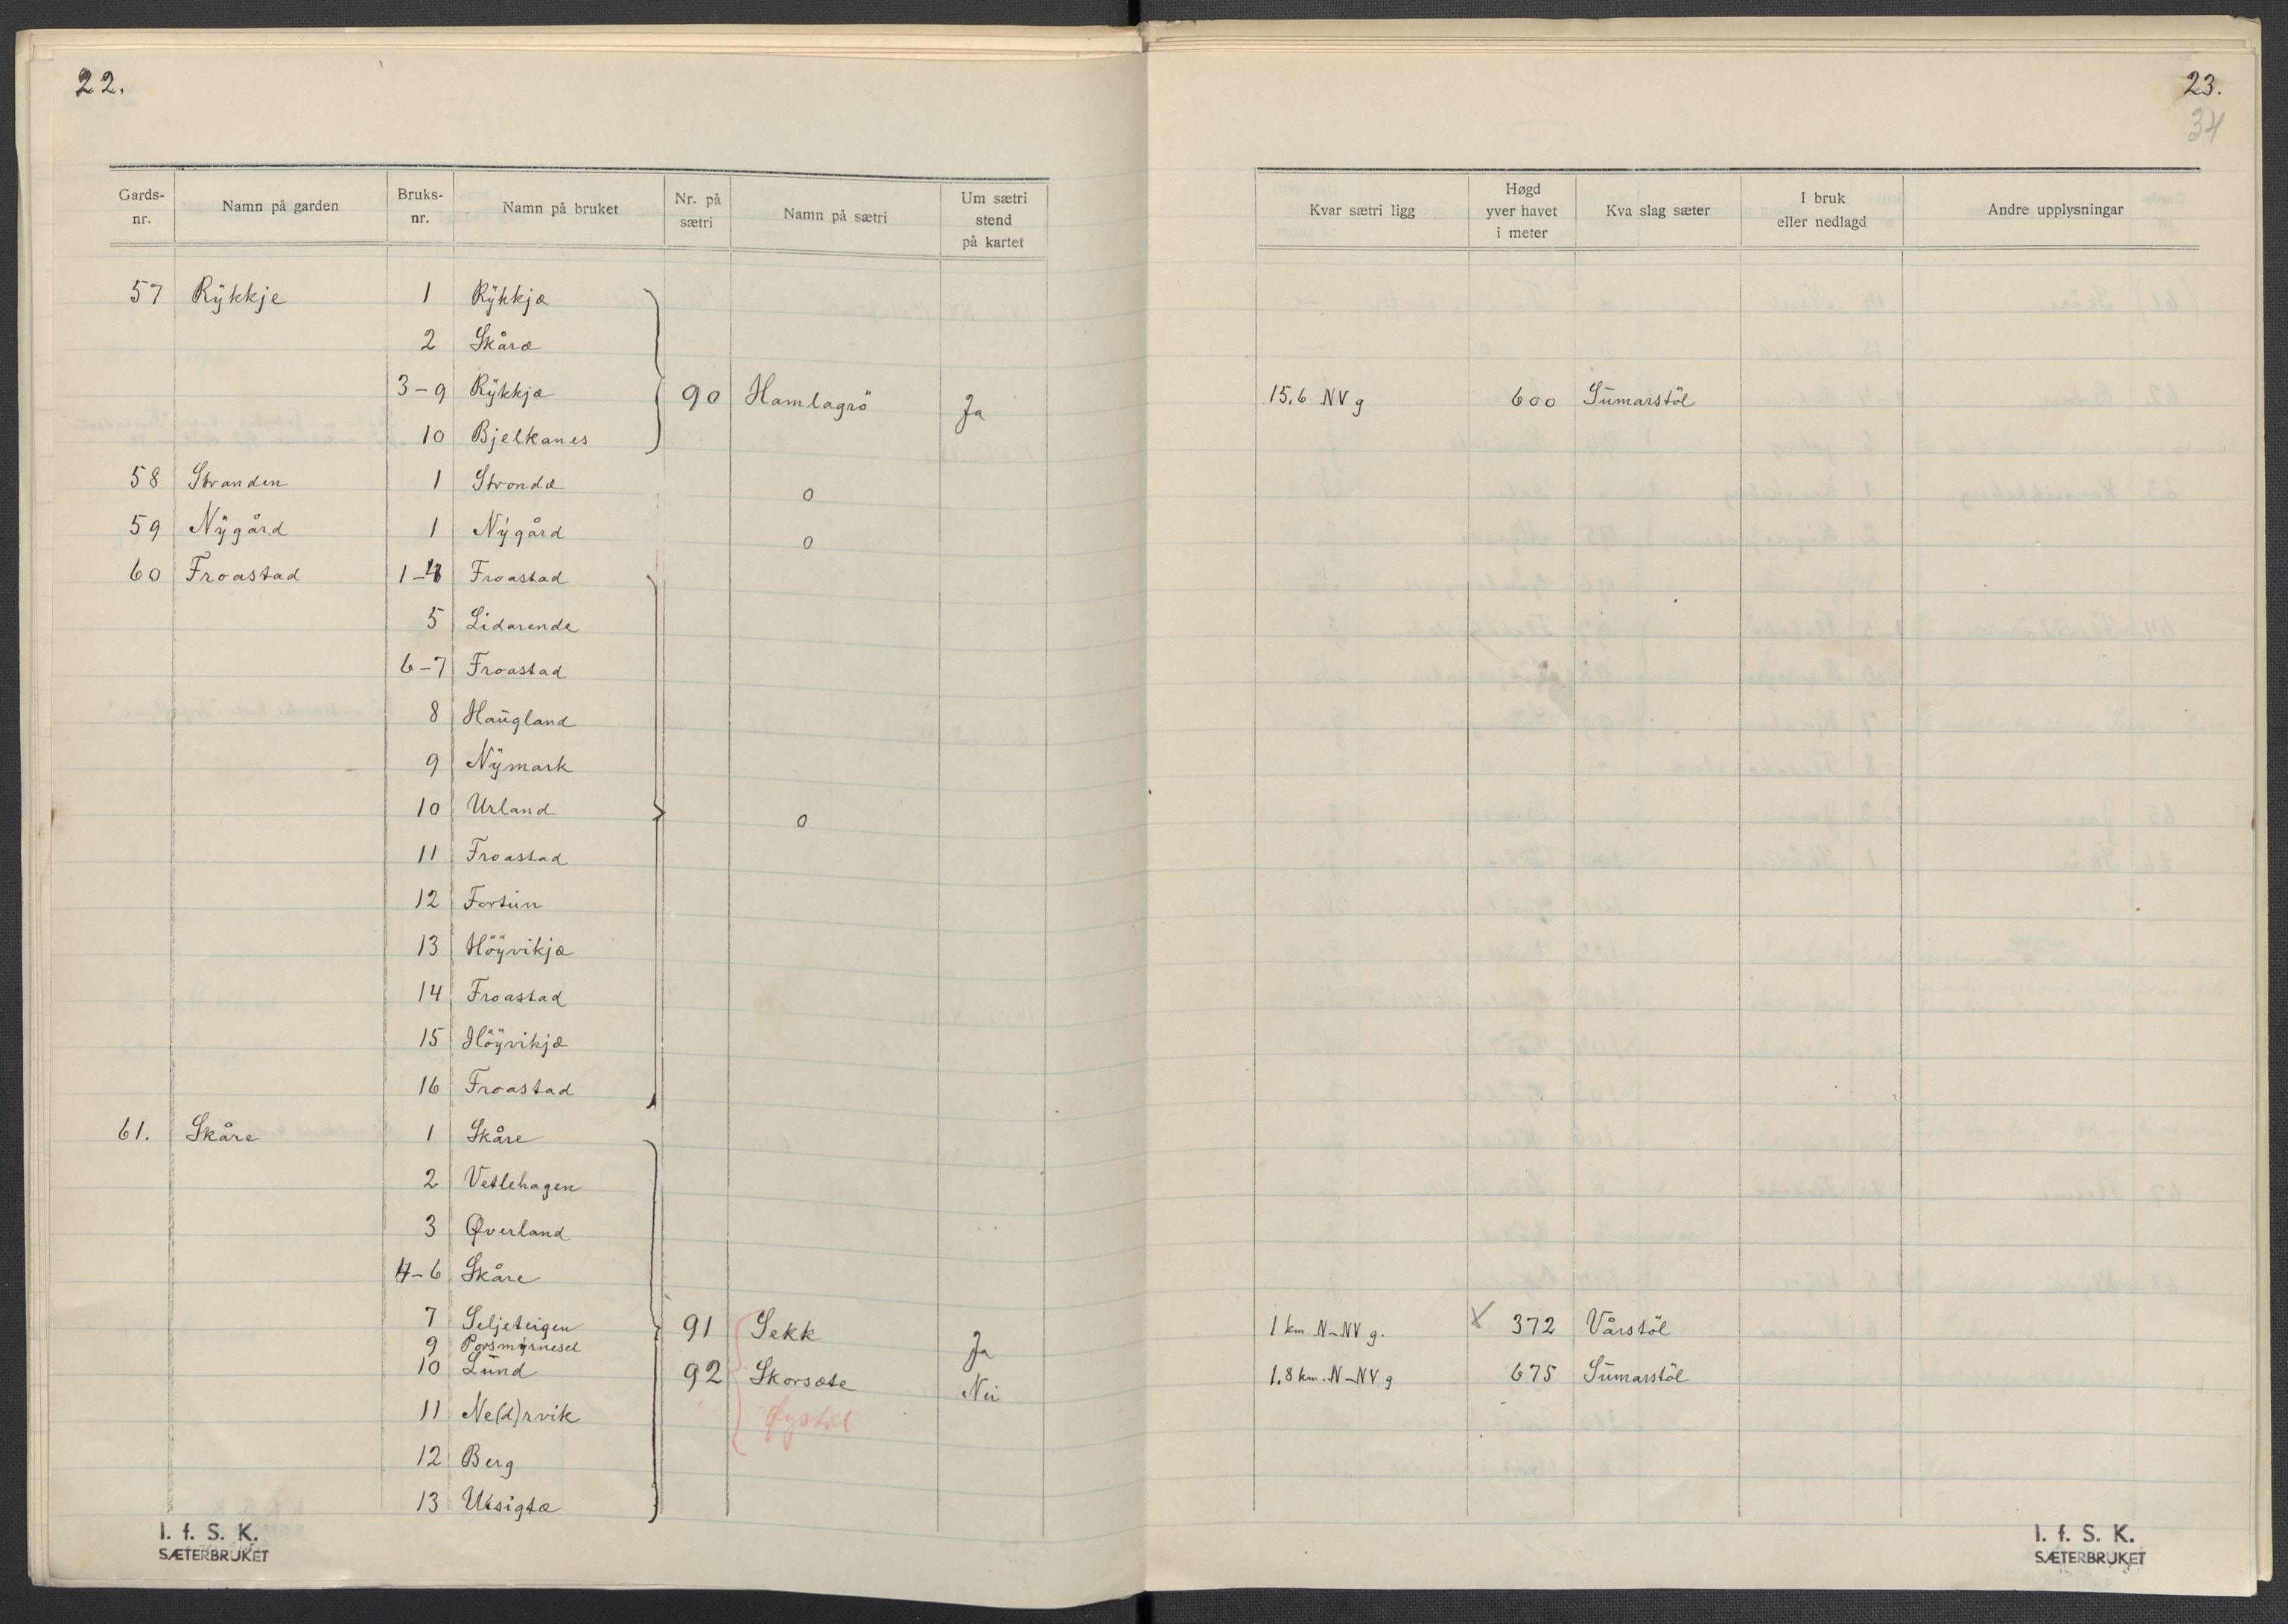 22.
Gards-nr. Namn på garden Bruks-nr. Namn på bruket Nr. på sætri Namn på sætri Um sætri stend på kartet
57 Rÿkkje 1 Rÿkkjæ
2 Skåræ
3-9 Rÿkkjæ 90 Hamlagrö Ja
10 Bjelkanes
58 Stranden 1 Strondæ o
59 Nÿgård 1 Nýgård o
60 Froastad 1-4 Froastad
5 Lidarende
6-7 Froastad
8 Haŭgland
9 Nÿmark
10 Urland o
11 Froastad
12 Fortŭn
13 Höÿvikjæ
14 Froastad
15 Höÿvikjæ
16 Froastad
61. Skåre 1 Skåre
2 Vetlehagen
3 Øverland
4-6 Skåre
7 Seljeteigen 91 Sekk Ja
9 Porsmyrnesel
10 Lŭnd 92 Skorsæte Nei
11 Ne(d)rvik Øystøl
12 Berg
13 Utsigtæ
I. f. S. K.
SÆTERBRUKET
23.
34
Kvar sætri ligg Høgd yver havet i meter Kva slag sæter I bruk eiler nedlagd Andre upplysningar
15,6 NV g 600 Sŭmarstöl
1 km. N-NV g. X 372 Vårstöl
1,8 km. N-NV g 675 Sŭmarstöl
I. f. S. K.
SÆTERBRUKET